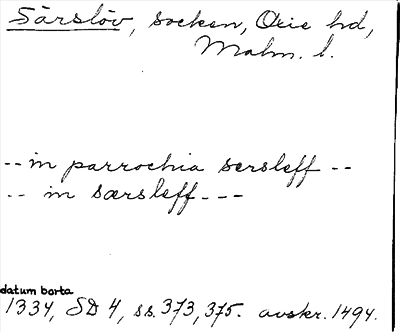 Särslöv, socken, Oxie hd,
Malm. l.
-- in parrochia sersleff --
-- in særsleff---
datum borta
1334, SD 4, ss. 373, 375. avskr. 1494.